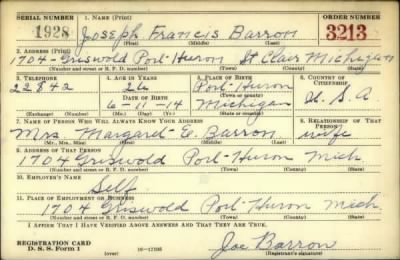 SERIAL NUMBER 1. NAME (Print) ORDER NUMBER
1928 Joseph Francis Barron 3213
(First) (Middle) (Last)
2. ADDRESS (Print)
1704 - Griswold Port-Huron St Clair Michigan
(Number and street or R. F. D. number) (Town) (County) (State)
3. TELEPHONE 4. AGE IN YEARS 5. PLACE OF BIRTH 6. COUNTRY OF CITIZENSHIP
22842 26 Port-Huron
DATE OF BIRTH (Town or county)
6-11-14 Michigan U. S. A
(Exchange) (Number) (Mo.) (Day) (Yr.) (State or country)
7. NAME OF PERSON WHO WILL ALWAYS KNOW YOUR ADDRESS 8. RELATIONSHIP OF THAT PERSON
Mrs. Margaret E. Barron wife
(Mr., Mrs., Miss) (First) (Middle) (Last)
9. ADDRESS OF THAT PERSON
1704 Griswold Port-Huron Mich
(Number and street or R. F. D. number) (Town) (County) (State)
10. EMPLOYER'S NAME
Self
11. PLACE OF EMPLOYMENT OR BUSINESS
1704 Griswold Port-Huron Mich.
(Number and street or R. F. D. number) (Town) (County) (State)
I AFFIRM THAT I HAVE VERIFIED ABOVE ANSWERS AND THAT THEY ARE TRUE.
REGISTRATION CARD
D. S. S. Form 1 (over) Joe Barron
(Registrant's signature)